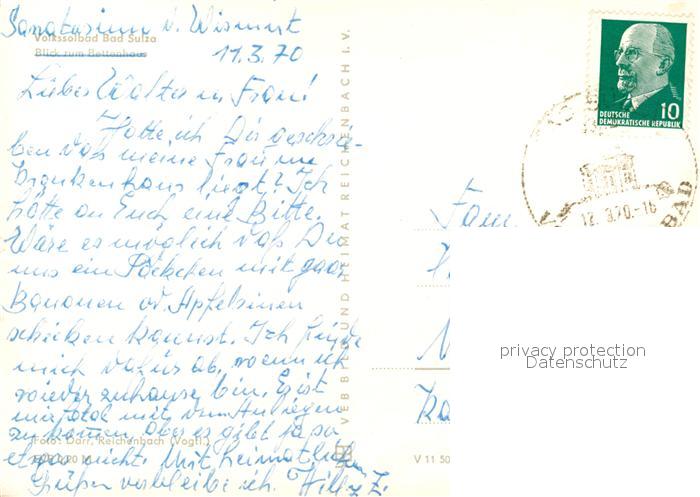 Sanatorium v. Wismut
Volkssolbad Bad Sulza
Blick zum Bettenhaus
11.3.70
Lieber Walter u. Frau!
Hatte ich Dir geschrie-
ben daß meine Frau im
Krankenhaus liegt? Ich
hätte an Euch eine Bitte.
Wäre es möglich daß Du
uns ein Päckchen mit paar
Bananen od. Apfelsinen
schicken kannst. Ich finde
mich dafür ab, wenn ich
wieder zuhause bin. Es ist
mir fatal mit dem Anliegen
zu kommen, aber es gibt ja so
Foto: Darr, Reichenbach (Vogtl.)
etwas nicht. Mit heimatlichen
Grüßen verbleibe ich.
VEB BILD UND HEIMAT REICHENBACH I. V.
V 11 50
10
DEUTSCHE
DEMOKRATISCHE REPUBLIK
12.3.70.-16
BAD
Fam.
privacy protection
Datenschutz